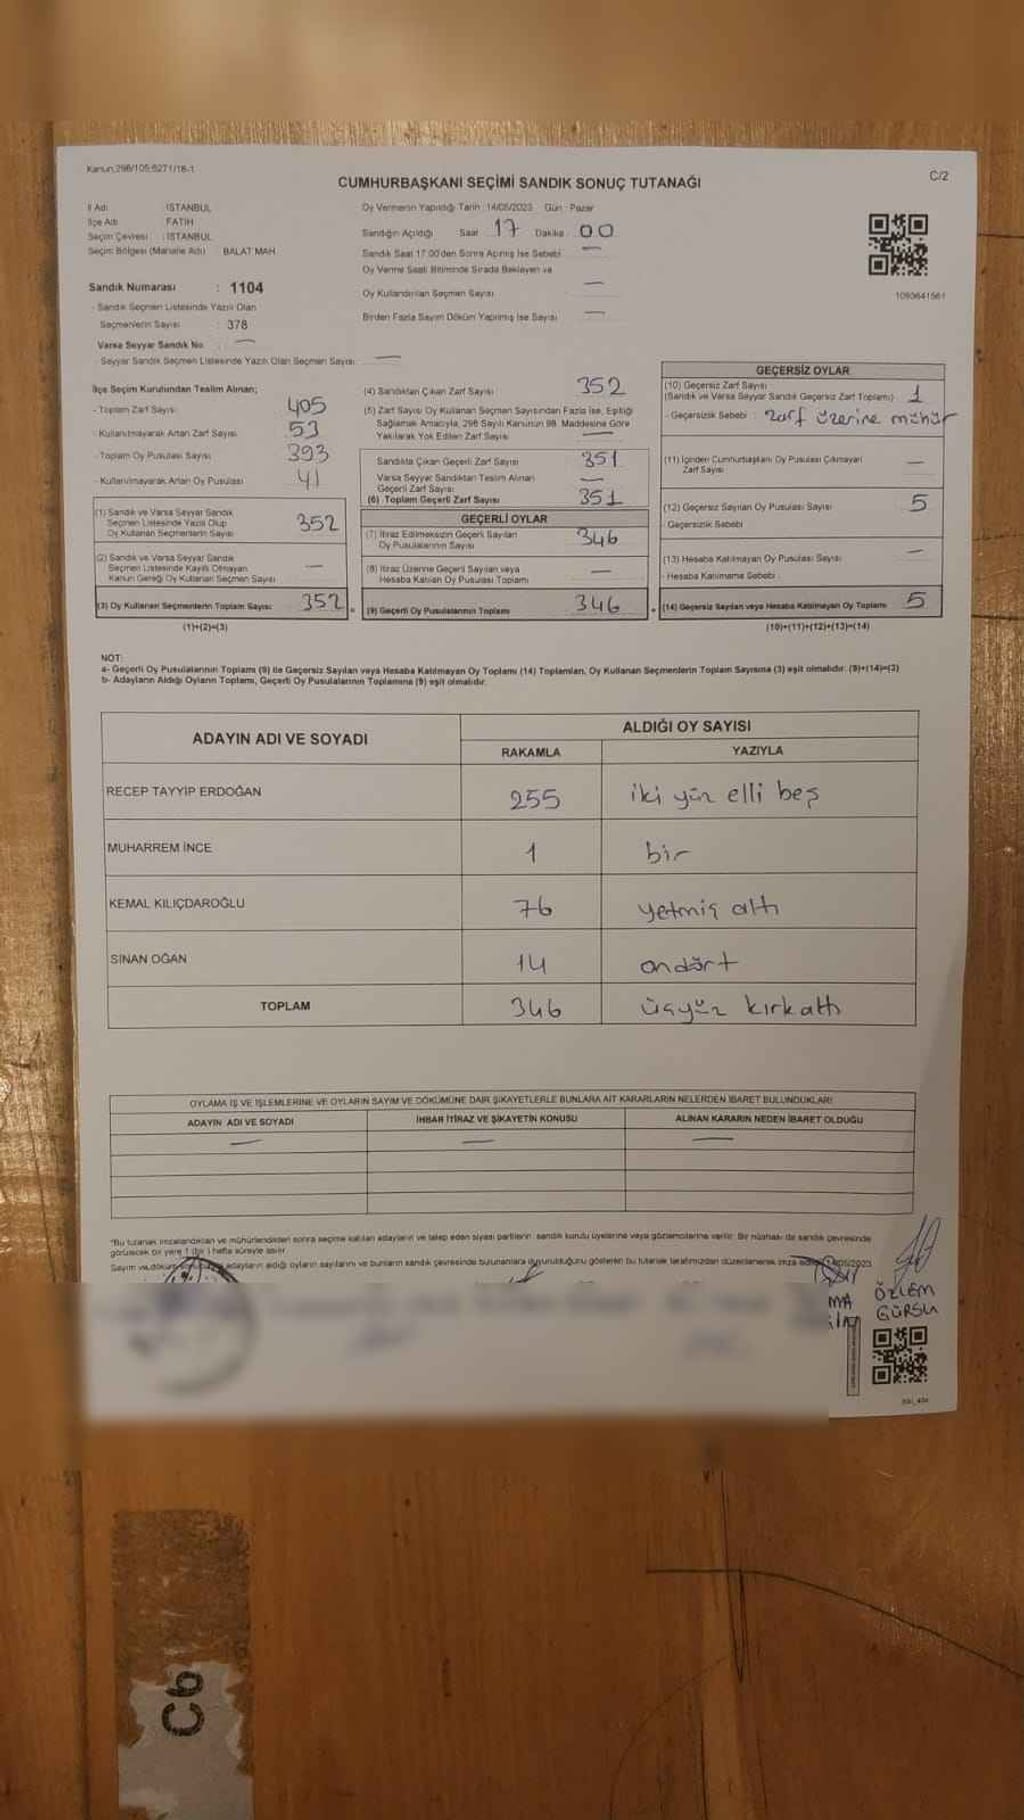 Kanun,298/105;6271/18-1
C/2
CUMHURBAŞKANI SEÇİMİ SANDIK SONUÇ TUTANAĞI
İl Adı İSTANBUL
İlçe Adı FATİH
Seçim Çevresi : İSTANBUL
Seçim Bölgesi (Mahalle Adı) BALAT MAH
Sandık Numarası : 1104
- Sandık Seçmen Listesinde Yazılı Olan
Seçmenlerin Sayısı : 378
Varsa Seyyar Sandık No —
Seyyar Sandık Seçmen Listesinde Yazılı Olan Seçmen Sayısı —
Oy Vermenin Yapıldığı Tarih : 14/05/2023 Gün : Pazar
Sandığın Açıldığı Saat 17 Dakika 00
Sandık Saat 17:00'den Sonra Açılmış İse Sebebi —
Oy Verme Saati Bitiminde Sırada Bekleyen ve
Oy Kullandırılan Seçmen Sayısı —
Birden Fazla Sayım Döküm Yapılmış İse Sayısı —
1093641561
İlçe Seçim Kurulundan Teslim Alınan;
- Toplam Zarf Sayısı 405
- Kullanılmayarak Artan Zarf Sayısı 53
- Toplam Oy Pusulası Sayısı 393
- Kullanılmayarak Artan Oy Pusulası 41
(1) Sandık ve Varsa Seyyar Sandık
Seçmen Listesinde Yazılı Olup
Oy Kullanan Seçmenlerin Sayısı 352
(2) Sandık ve Varsa Seyyar Sandık
Seçmen Listesinde Kayıtlı Olmayan
Kanun Gereği Oy Kullanan Seçmen Sayısı —
(3) Oy Kullanan Seçmenlerin Toplam Sayısı 352
(1)+(2)=(3)
(4) Sandıktan Çıkan Zarf Sayısı 352
(5) Zarf Sayısı Oy Kullanan Seçmen Sayısından Fazla İse, Eşitliği
Sağlamak Amacıyla, 298 Sayılı Kanunun 98. Maddesine Göre
Yakılarak Yok Edilen Zarf Sayısı —
Sandıkta Çıkan Geçerli Zarf Sayısı 351
Varsa Seyyar Sandıktan Teslim Alınan
Geçerli Zarf Sayısı —
(6) Toplam Geçerli Zarf Sayısı 351
GEÇERLİ OYLAR
(7) İtiraz Edilmeksizin Geçerli Sayılan
Oy Pusulalarının Sayısı 346
(8) İtiraz Üzerine Geçerli Sayılan veya
Hesaba Katılan Oy Pusulası Toplamı —
(9) Geçerli Oy Pusulalarının Toplamı 346
GEÇERSİZ OYLAR
(10) Geçersiz Zarf Sayısı
(Sandık ve Varsa Seyyar Sandık Geçersiz Zarf Toplamı) 1
- Geçersizlik Sebebi : zarf üzerine mühür
(11) İçinden Cumhurbaşkanı Oy Pusulası Çıkmayan
Zarf Sayısı —
(12) Geçersiz Sayılan Oy Pusulası Sayısı 5
- Geçersizlik Sebebi
(13) Hesaba Katılmayan Oy Pusulası Sayısı —
- Hesaba Katılmama Sebebi
(14) Geçersiz Sayılan veya Hesaba Katılmayan Oy Toplamı 5
(10)+(11)+(12)+(13)=(14)
NOT:
a- Geçerli Oy Pusulalarının Toplamı (9) ile Geçersiz Sayılan veya Hesaba Katılmayan Oy Toplamı (14) Toplamları, Oy Kullanan Seçmenlerin Toplam Sayısına (3) eşit olmalıdır. (9)+(14)=(3)
b- Adayların Aldığı Oyların Toplamı, Geçerli Oy Pusulalarının Toplamına (9) eşit olmalıdır.
ADAYIN ADI VE SOYADI
ALDIĞI OY SAYISI
RAKAMLA YAZIYLA
RECEP TAYYİP ERDOĞAN 255 iki yüz elli beş
MUHARREM İNCE 1 bir
KEMAL KILIÇDAROĞLU 76 yetmiş altı
SİNAN OĞAN 14 ondört
TOPLAM 346 üçyüz kırkaltı
OYLAMA İŞ VE İŞLEMLERİNE VE OYLARIN SAYIM VE DÖKÜMÜNE DAİR ŞİKAYETLERLE BUNLARA AİT KARARLARIN NELERDEN İBARET BULUNDUKLARI
ADAYIN ADI VE SOYADI İHBAR İTİRAZ VE ŞİKAYETİN KONUSU ALINAN KARARIN NEDEN İBARET OLDUĞU
— — —
"Bu tutanak imzalandıktan ve mühürlendikten sonra seçime katılan adayların ve talep eden siyasi partilerin sandık kurulu üyelerine veya gözlemcilerine verilir. Bir nüshası da sandık çevresinde
görülecek bir yere 1 (bir) hafta süreyle asılır.
Sayım ve döküm adayların aldığı oyların sayılarını ve bunların sandık çevresinde bulunanlara duyurulduğunu gösteren bu tutanak tarafımızdan düzenlenerek imza
MA
ÖZLEM
GÜRSU
C6